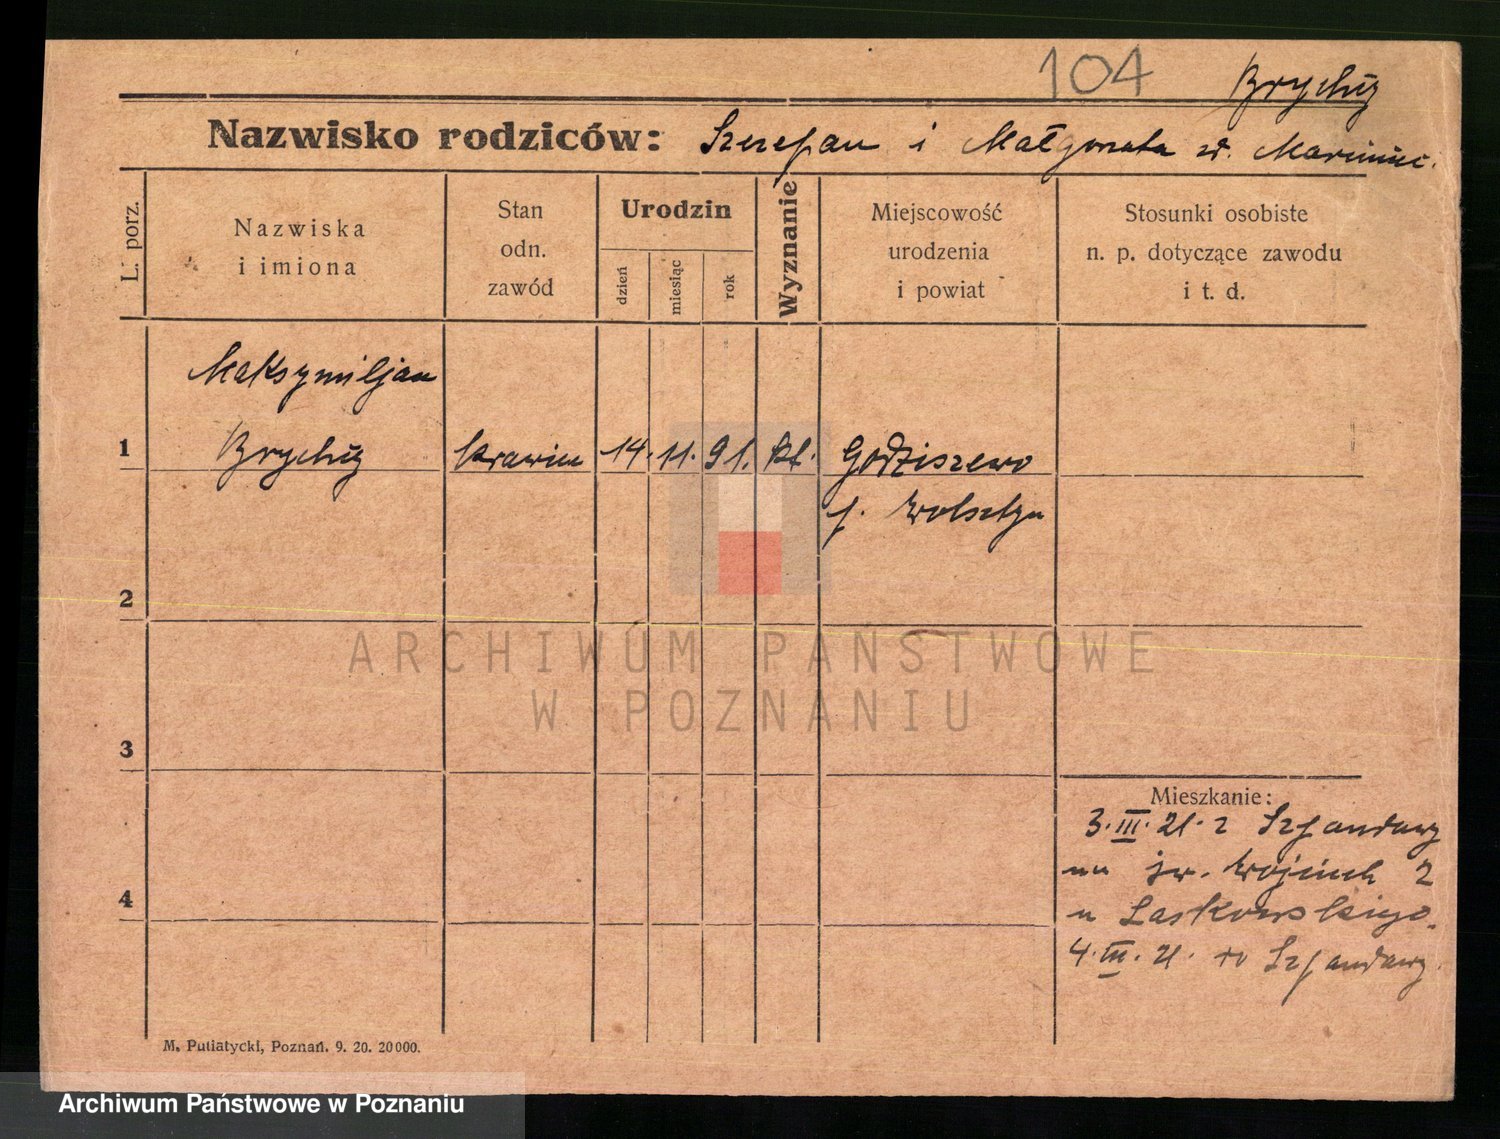 104 Brychcy
Nazwisko rodziców: Szczepan i Małgorzata zd. Marciniec.
L. porz.
Nazwiska
i imiona
Stan
odn.
zawód
Urodzin
dzień
miesiąc
rok
Wyznanie
Miejscowość
urodzenia
i powiat
Stosunki osobiste
n. p. dotyczące zawodu
i t. d.
Maksymiljan
1 Brychcy krawiec 14. 11. 91. kt. Godziszewo
p. Wolsztyn
2
3
4
Mieszkanie:
3.III.21. z
na św. Wojciech 2
u Laskowskiego.
4.III.21. do
M. Putiatycki, Poznań. 9. 20. 20000.
ARCHIWUM PAŃSTWOWE
W POZNANIU
Archiwum Państwowe w Poznaniu